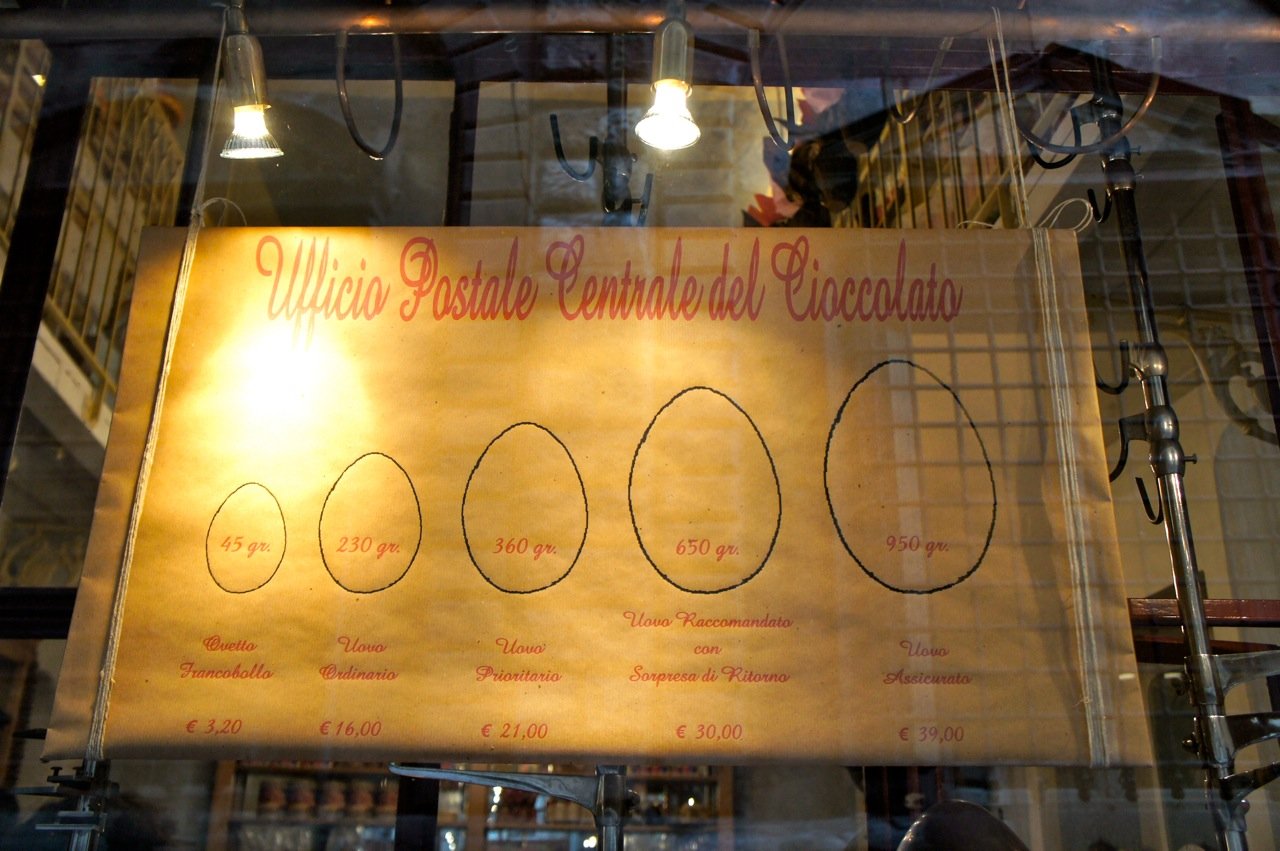 Ufficio Postale Centrale del Cioccolato
45 gr.
230 gr.
360 gr.
650 gr.
950 gr.
Ovetto
Francobollo
€ 3,20
Uovo
Ordinario
€ 16,00
Uovo
Prioritario
€ 21,00
Uovo Raccomandato
con
Sorpresa di Ritorno
€ 30,00
Uovo
Assicurato
€ 39,00